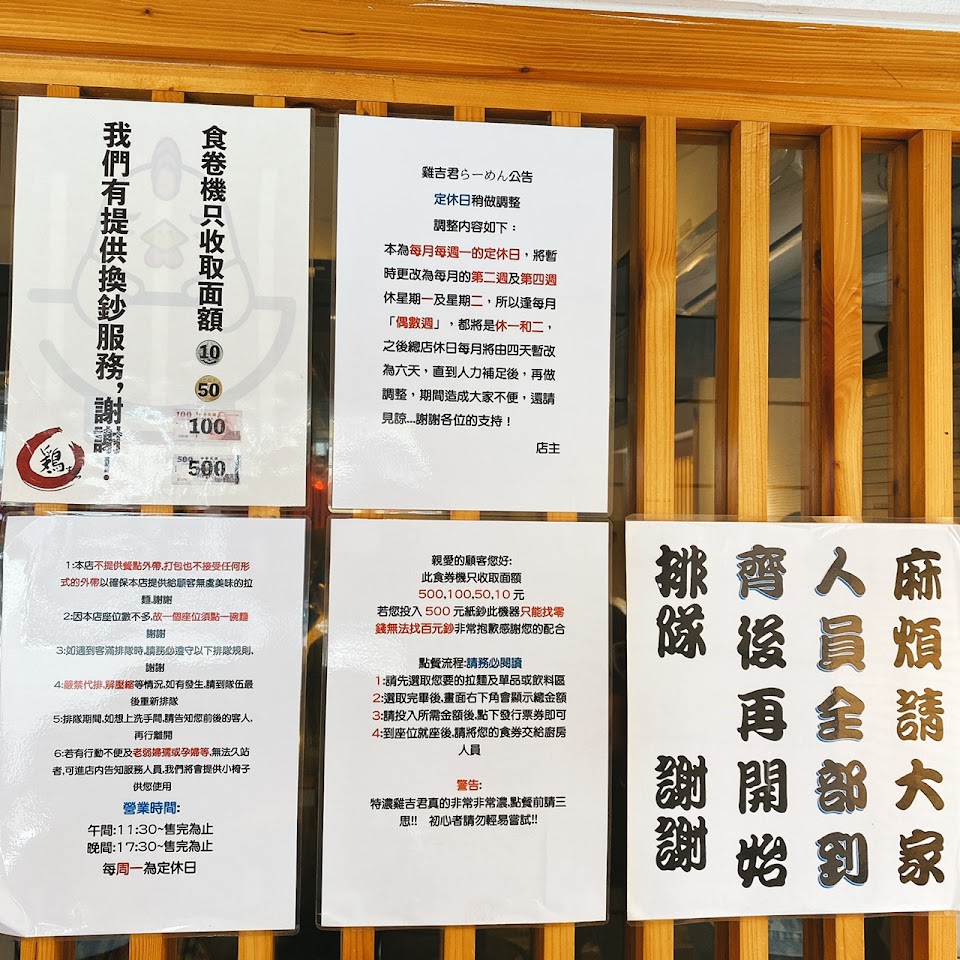 食卷機只收取面額
10
50
100
100
500
500
我們有提供換鈔服務,謝謝!
雞
雞吉君らーめん公告
定休日稍做調整
調整內容如下：
本為每月每週一的定休日，將暫
時更改為每月的第二週及第四週
休星期一及星期二，所以逢每月
「偶數週」，都將是休一和二，
之後總店休日每月將由四天暫改
為六天，直到人力補足後，再做
調整，期間造成大家不便，還請
見諒...謝謝各位的支持！
店主
1:本店不提供餐點外帶,打包也不接受任何形
式的外帶以確保本店提供給顧客無處美味的拉
麵.謝謝
2:因本店座位數不多,故一個座位須點一碗麵
謝謝
3:如遇到客滿排隊時,請務必遵守以下排隊規則,
謝謝
4:嚴禁代排,解壓縮等情況,如有發生,請到隊伍最
後重新排隊
5:排隊期間,如想上洗手間,請告知您前後的客人,
再行離開
6:若有行動不便及老弱婦孺或孕婦等,無法久站
者,可進店內告知服務人員,我們將會提供小椅子
供您使用
營業時間:
午間:11:30~售完為止
晚間:17:30~售完為止
每周一為定休日
親愛的顧客您好:
此食券機只收取面額
500,100,50,10 元
若您投入 500 元紙鈔此機器只能找零
錢無法找百元鈔非常抱歉感謝您的配合
點餐流程:請務必閱讀
1:請先選取您要的拉麵及單品或飲料區
2:選取完畢後,畫面右下角會顯示總金額
3:請投入所需金額後,點下發行票券即可
4:到座位就座後,請將您的食券交給廚房
人員
警告:
特濃雞吉君真的非常非常濃.點餐前請三
思!! 初心者請勿輕易嘗試!!
麻煩請大家
人員全部到
齊後再開始
排隊 謝謝